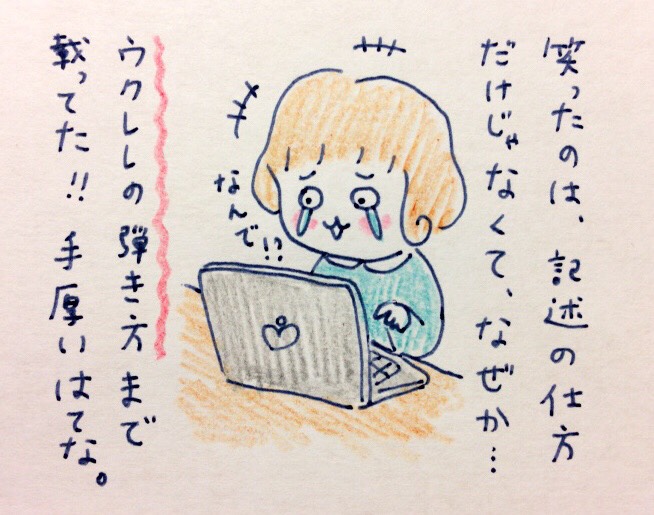 笑ったのは、記述の仕方
だけじゃなくて、なぜか…
なんで!?
ウクレレの弾き方まで
載ってた!! 手厚いはてな。